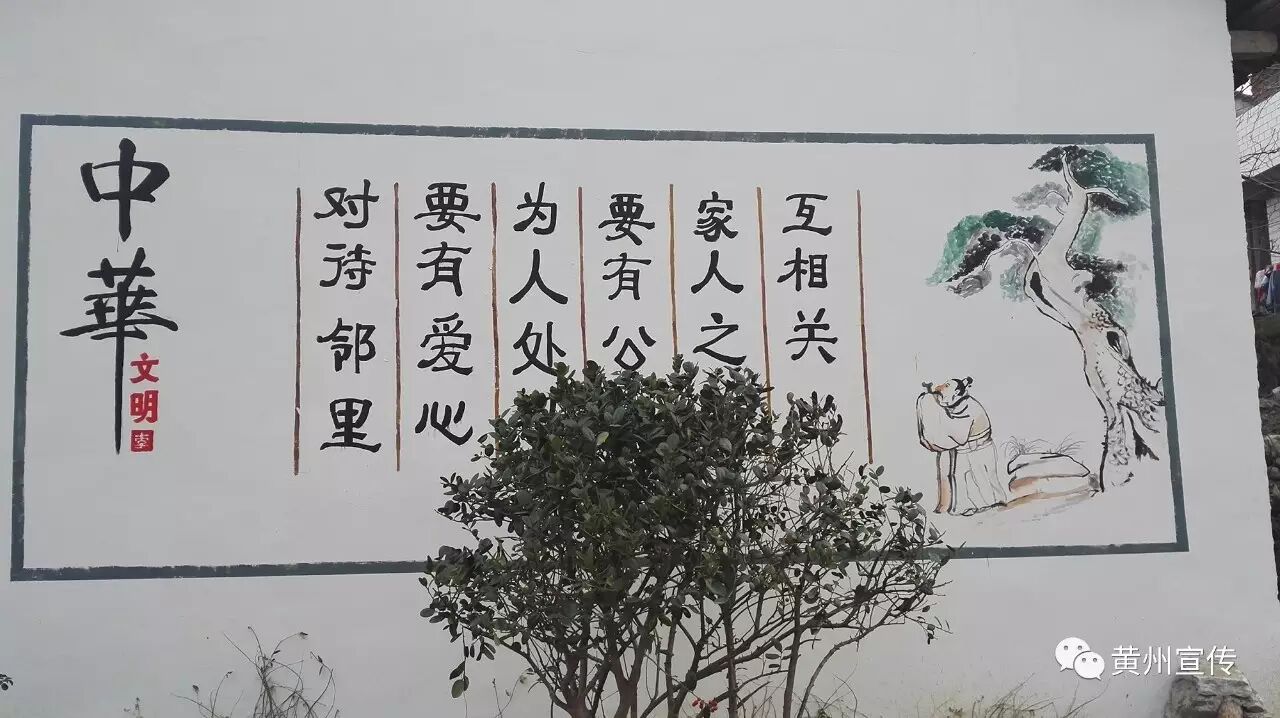 中華
文明
对待邻里
要有爱心
为人处
要有公
家人之
互相关
黄州宣传